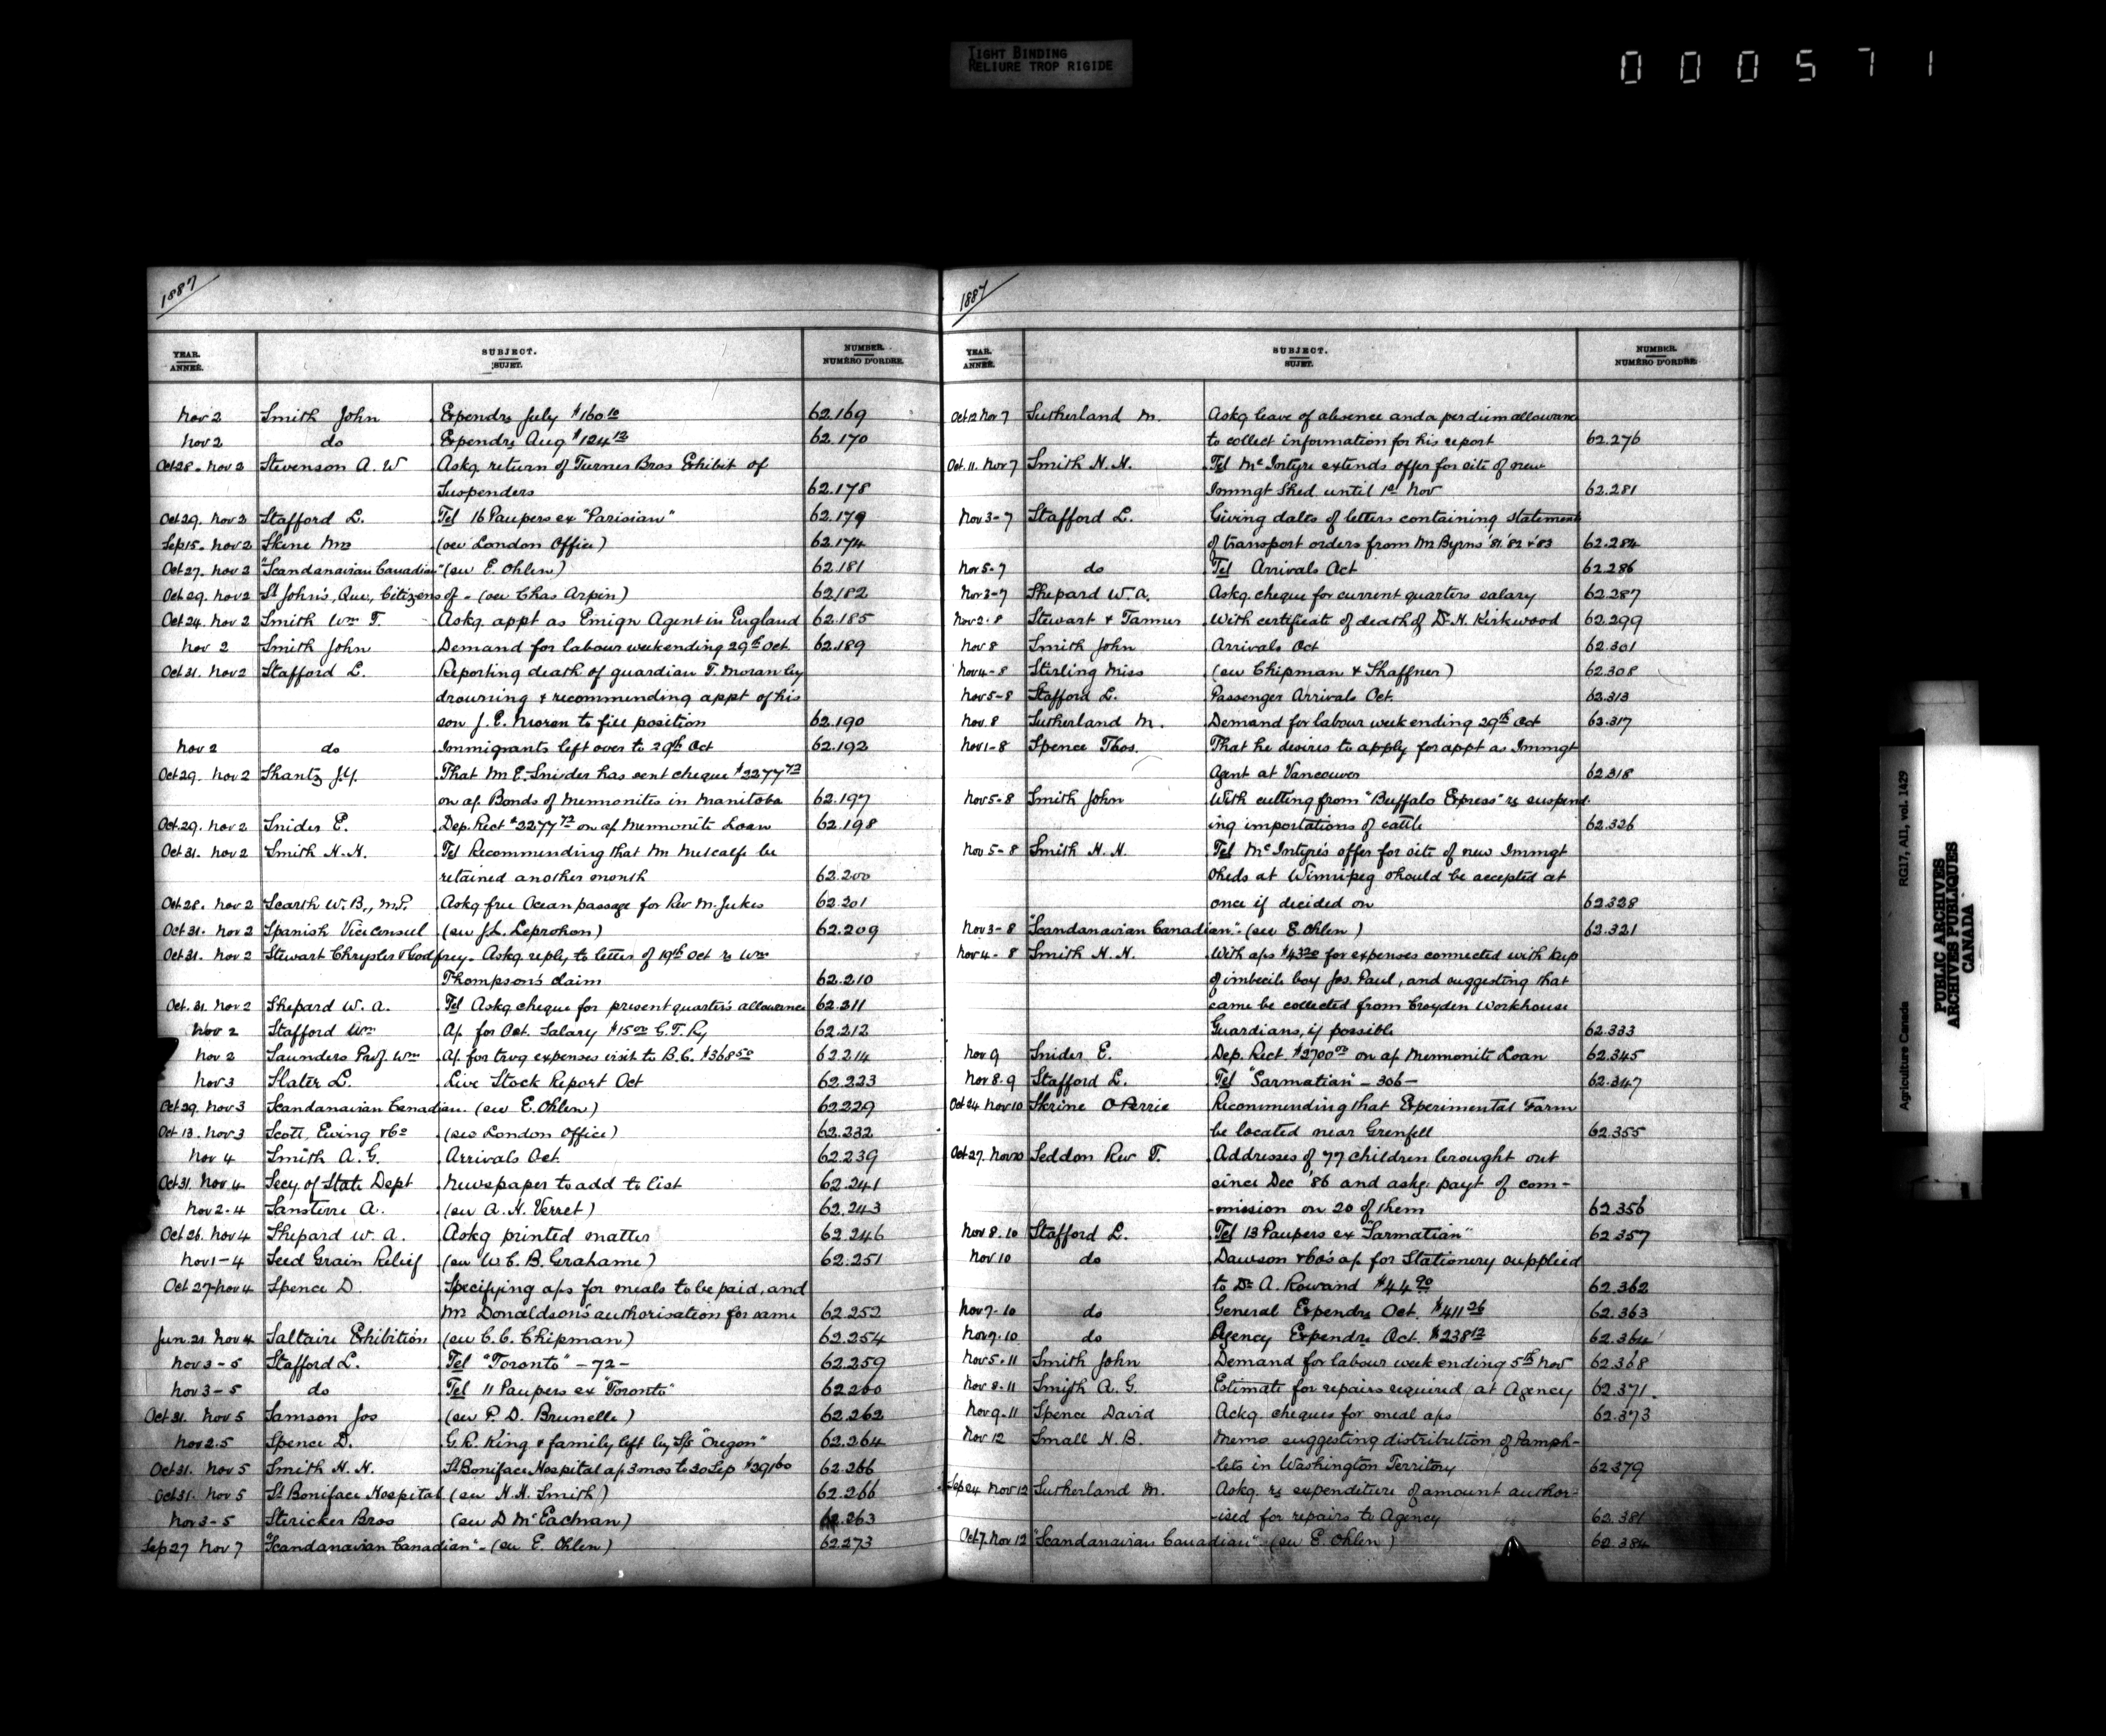 TIGHT BINDING
RELIURE TROP RIGIDE
000571
1887
YEAR. ANNÉE. SUBJECT. SUJET. NUMBER. NUMÉRO D'ORDRE.
Nov 2 Smith John Expendrs July $160.10 62.169
Nov 2 do Expendrs Aug $124 12 62.170
Oct 28. Nov 2 Stevenson A. W Askg return of Turner Bros Exhibit of
Suspenders 62.178
Oct 29. Nov 2 Stafford L. Tel 16 Paupers ex "Parisian" 62.179
Sep 15. Nov 2 Skene Mrs (see London Office) 62.174
Oct 27. Nov 2 "Scandanavian Canadian" (see E. Ohlen) 62.181
Oct 29. Nov 2 St John's, Que, Citizens of - (see Chas Arpin) 62.182
Oct 24. Nov 2 Smith Wm T. Askg appt as Emign Agent in England 62.185
Nov 2 Smith John Demand for labour week ending 29th Oct. 62.189
Oct 31. Nov 2 Stafford L. Reporting death of guardian T. Moran by
drowning & recommending appt of his
son J. E. Moran to fill position 62.190
Nov 2 do Immigrants left over to 29th Oct 62.192
Oct 29. Nov 2 Shantz J.Y. That Mr E. Snider has sent cheque $2277 72
on a/c Bonds of Mennonites in Manitoba 62.197
Oct 29. Nov 2 Snider E. Dep. Rect $2277 72 on a/c Mennonite Loan 62.198
Oct 31. Nov 2 Smith H. H. Tel Recommending that Mr Metcalfe be
retained another month 62.200
Oct 28. Nov 2 Scarth W. B., M.P. Askg free Ocean passage for Rev M. Jukes 62.201
Oct 31. Nov 2 Spanish Vice consul (see J. L. Leprohon) 62.209
Oct 31. Nov 2 Stewart Chrysler & Godfrey. Askg reply to letter of 19th Oct re Wm
Thompson's claim 62.210
Oct. 31. Nov 2 Shepard W. A. Tel Askg cheque for present quarter's allowance 62.211
Nov 2 Stafford Wm A/c for Oct. Salary $15 00 G. T. Ry 62.212
Nov 2 Saunders Prof. Wm A/c for travg expenses visit to B.C. $368 50 62.214
Nov 3 Slater L. Live Stock Report Oct 62.223
Oct 29. Nov 3 Scandanavian Canadian. (see E. Ohlen) 62.229
Oct 13. Nov 3 Scott, Ewing & Co (see London Office) 62.232
Nov 4 Smith A. G. Arrivals Oct. 62.239
Oct 31. Nov 4 Secy of State Dept Newspaper to add to list 62.241
Nov 2-4 Sansterre A. (see A. H. Verret) 62.243
Oct 26. Nov 4 Shepard W. A. Askg printed matter 62.246
Nov 1-4 Seed Grain Relief (see W. C. B. Grahame) 62.251
Oct 27-Nov 4 Spence D. Specifying a/cs for meals to be paid, and
Mr Donaldson's authorisation for same 62.252
Jun. 21. Nov 4 Saltaire Exhibition (see C. C. Chipman) 62.254
Nov 3-5 Stafford L. Tel "Toronto" - 72 - 62.259
Nov 3-5 do Tel 11 Paupers ex "Toronto" 62.260
Oct 31. Nov 5 Samson Jos (see P. D. Brunelle) 62.262
Nov 2.5 Spence D. G. R. King & family left by S/S "Oregon" 62.264
Oct 31. Nov 5 Smith H. H. St Boniface Hospital a/c 3 mos to 30 Sep $391 60 62.266
Oct 31. Nov 5 St Boniface Hospital (see H. H. Smith) 62.266
Nov 3-5 Stericker Bros (see D McEachran) 62.263
Sep 27 Nov 7 "Scandanavian Canadian" - (see E. Ohlen) 62.273
1887
YEAR. ANNÉE. SUBJECT. SUJET. NUMBER. NUMÉRO D'ORDRE.
Oct 12 Nov 7 Sutherland M. Askg leave of absence and a per diem allowance
to collect information for his report 62.276
Oct. 11. Nov 7 Smith H. H. Tel McIntyre extends offer for site of new
Immgt Shed until 1st Nov 62.281
Nov 3-7 Stafford L. Giving dates of letters containing statements
of transport orders from Mr Byrns '81. '82 & '83 62.284
Nov 5-7 do Tel Arrivals Oct 62.286
Nov 3-7 Shepard W. A. Askg. cheque for current quarters salary 62.287
Nov 2.8 Stewart & Tanner With certificate of death of D. H. Kirkwood 62.299
Nov 8 Smith John Arrivals Oct 62.301
Nov 4-8 Stirling Miss (see Chipman & Shaffner) 62.308
Nov 5-8 Stafford L. Passenger Arrivals Oct. 62.313
Nov. 8 Sutherland M. Demand for labour week ending 29th Oct 62.317
Nov 1-8 Spence Thos. That he desires to apply for appt as Immgt
Agent at Vancouver 62.318
Nov 5-8 Smith John With cutting from "Buffalo Express" re suspend-
ing importations of cattle 62.326
Nov 5-8 Smith H. H. Tel McIntyre's offer for site of new Immgt
sheds at Winnipeg should be accepted at
once if decided on 62.328
Nov 3-8 "Scandanavian Canadian". (see E. Ohlen) 62.321
Nov 4-8 Smith H. H. With a/cs $43 20 for expenses connected with keep
of imbecile boy Jos. Paul, and suggesting that
same be collected from Croyden Workhouse
Guardians, if possible 62.333
Nov 9 Snider E. Dep. Rect. $2700 00 on a/c Mennonite Loan 62.345
Nov 8.9 Stafford L. Tel "Sarmatian" - 306 - 62.347
Oct 24 Nov 10 Skrine Recommending that Experimental Farm
be located near Grenfell 62.355
Oct 27. Nov 10 Seddon Rev T. Addresses of 77 children brought out
since Dec '86 and askg payt of com-
-mission on 20 of them 62.356
Nov 8.10 Stafford L. Tel 13 Paupers ex "Sarmatian" 62.357
Nov 10 do Dawson & Co's a/c for Stationery supplied
to Dr A. Rowand $44 90 62.362
Nov 7-10 do General Expendrs Oct. $411 26 62.363
Nov 9.10 do Agency Expendrs Oct. $238 12 62.364
Nov 5.11 Smith John Demand for labour week ending 5th Nov 62.368
Nov 8.11 Smith A. G. Estimate for repairs required at Agency 62.371.
Nov 9.11 Spence David Ackg cheques for meal a/cs 62.373
Nov 12 Small H. B. Memo suggesting distribution of Pamph-
-lets in Washington Territory 62.379
Sep 24 Nov 12 Sutherland M. Askg. re expenditure of amount author-
-ised for repairs to Agency 62.381
Oct 7. Nov 12 "Scandanavian Canadian" (see E. Ohlen) 62.384
Agriculture Canada RG17, AII, vol. 1429
PUBLIC ARCHIVES
ARCHIVES PUBLIQUES
CANADA